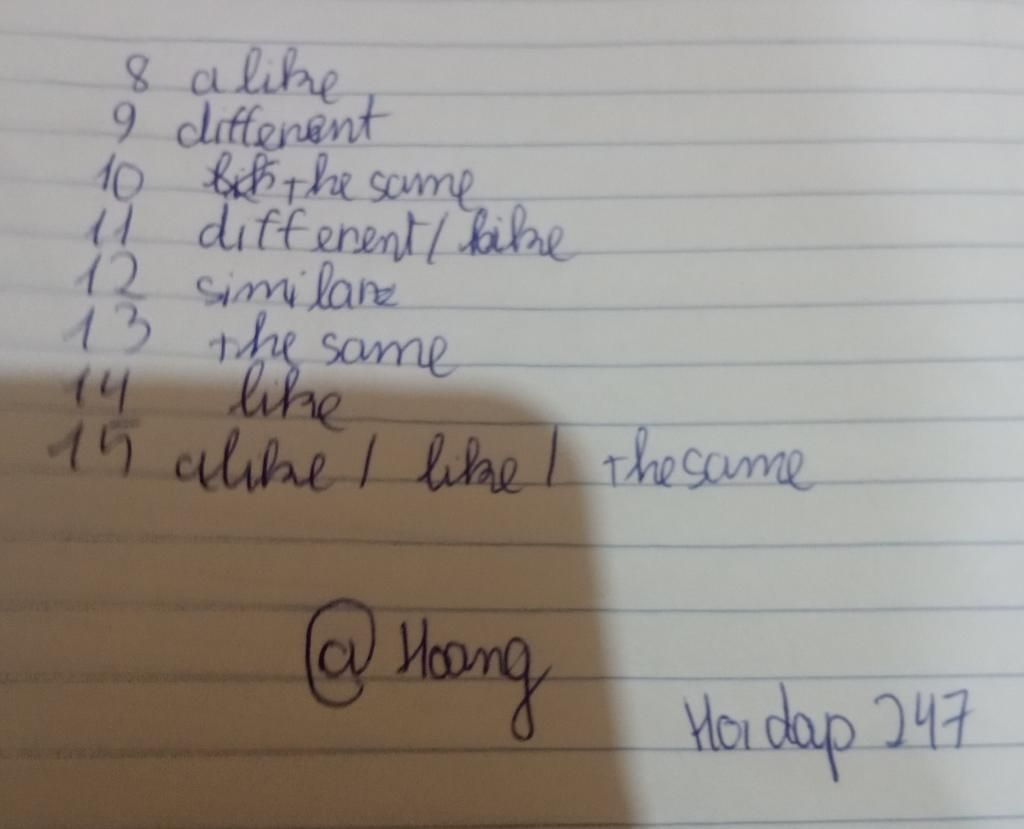 8 alike
9 different
10 the same
11 different / like
12 similar
13 the same
14 like
15 alike / like / the same
@Hoang
Hoidap 247